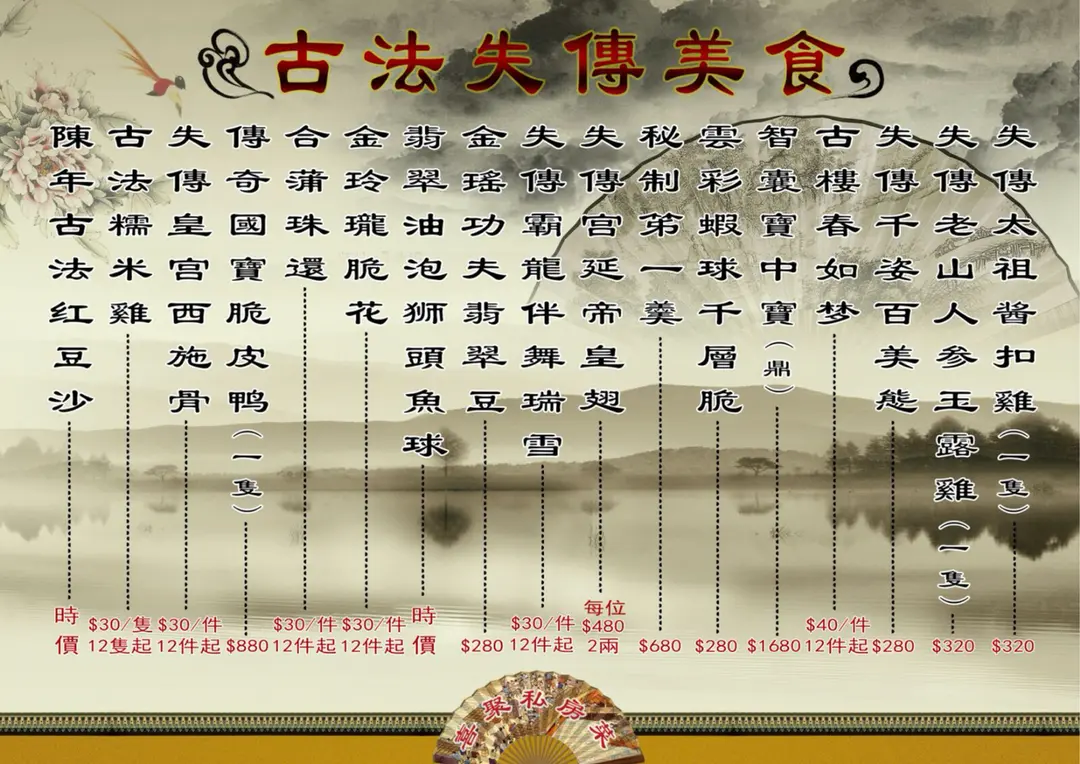 古法失傳美食
失傳太祖酱扣雞（一隻） $320
失傳老山人参玉露雞（一隻） $320
失傳千姿百美態 $280
古樓春如梦 $40/件 12件起
智囊寶中寶（鼎） $1680
雲彩蝦球千層脆 $280
秘制第一羹 $680
失傳宫延帝皇翅 每位 $480 2兩
失傳霸龍伴舞瑞雪 $30/件 12件起
金瑤功夫翡翠豆 $280
翡翠油泡狮頭魚球 時價
金玲瓏脆花 $30/件 12件起
合蒲珠還 $30/件 12件起
傳奇國寶脆皮鸭（一隻） $880
失傳皇宫西施骨 $30/件 12件起
古法糯米雞 $30/隻 12隻起
陳年古法红豆沙 時價
喜聚私房菜